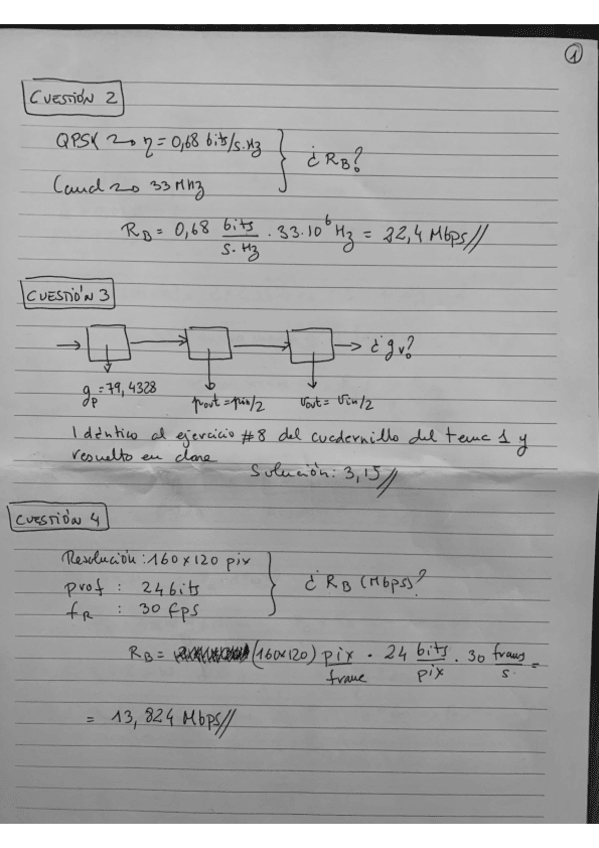 1
CUESTIÓN 2
QPSK → η = 0,68 bits/s.Hz
Canal → 33 MHz
¿ RB?
RB = 0,68 bits/s.Hz · 33·10⁶ Hz = 22,4 Mbps//
CUESTIÓN 3
¿ gv?
gp = 79,4328 pout = pin/2 vout = vin/2
Idéntico al ejercicio #8 del cuadernillo del tema 1 y
resuelto en clase
Solución: 3,15//
CUESTIÓN 4
Resolución: 160 x 120 pix
prof : 24 bits
fR : 30 fps
¿ RB (Mbps)?
RB = (160x120) pix/frame · 24 bits/pix · 30 frames/s =
= 13,824 Mbps//